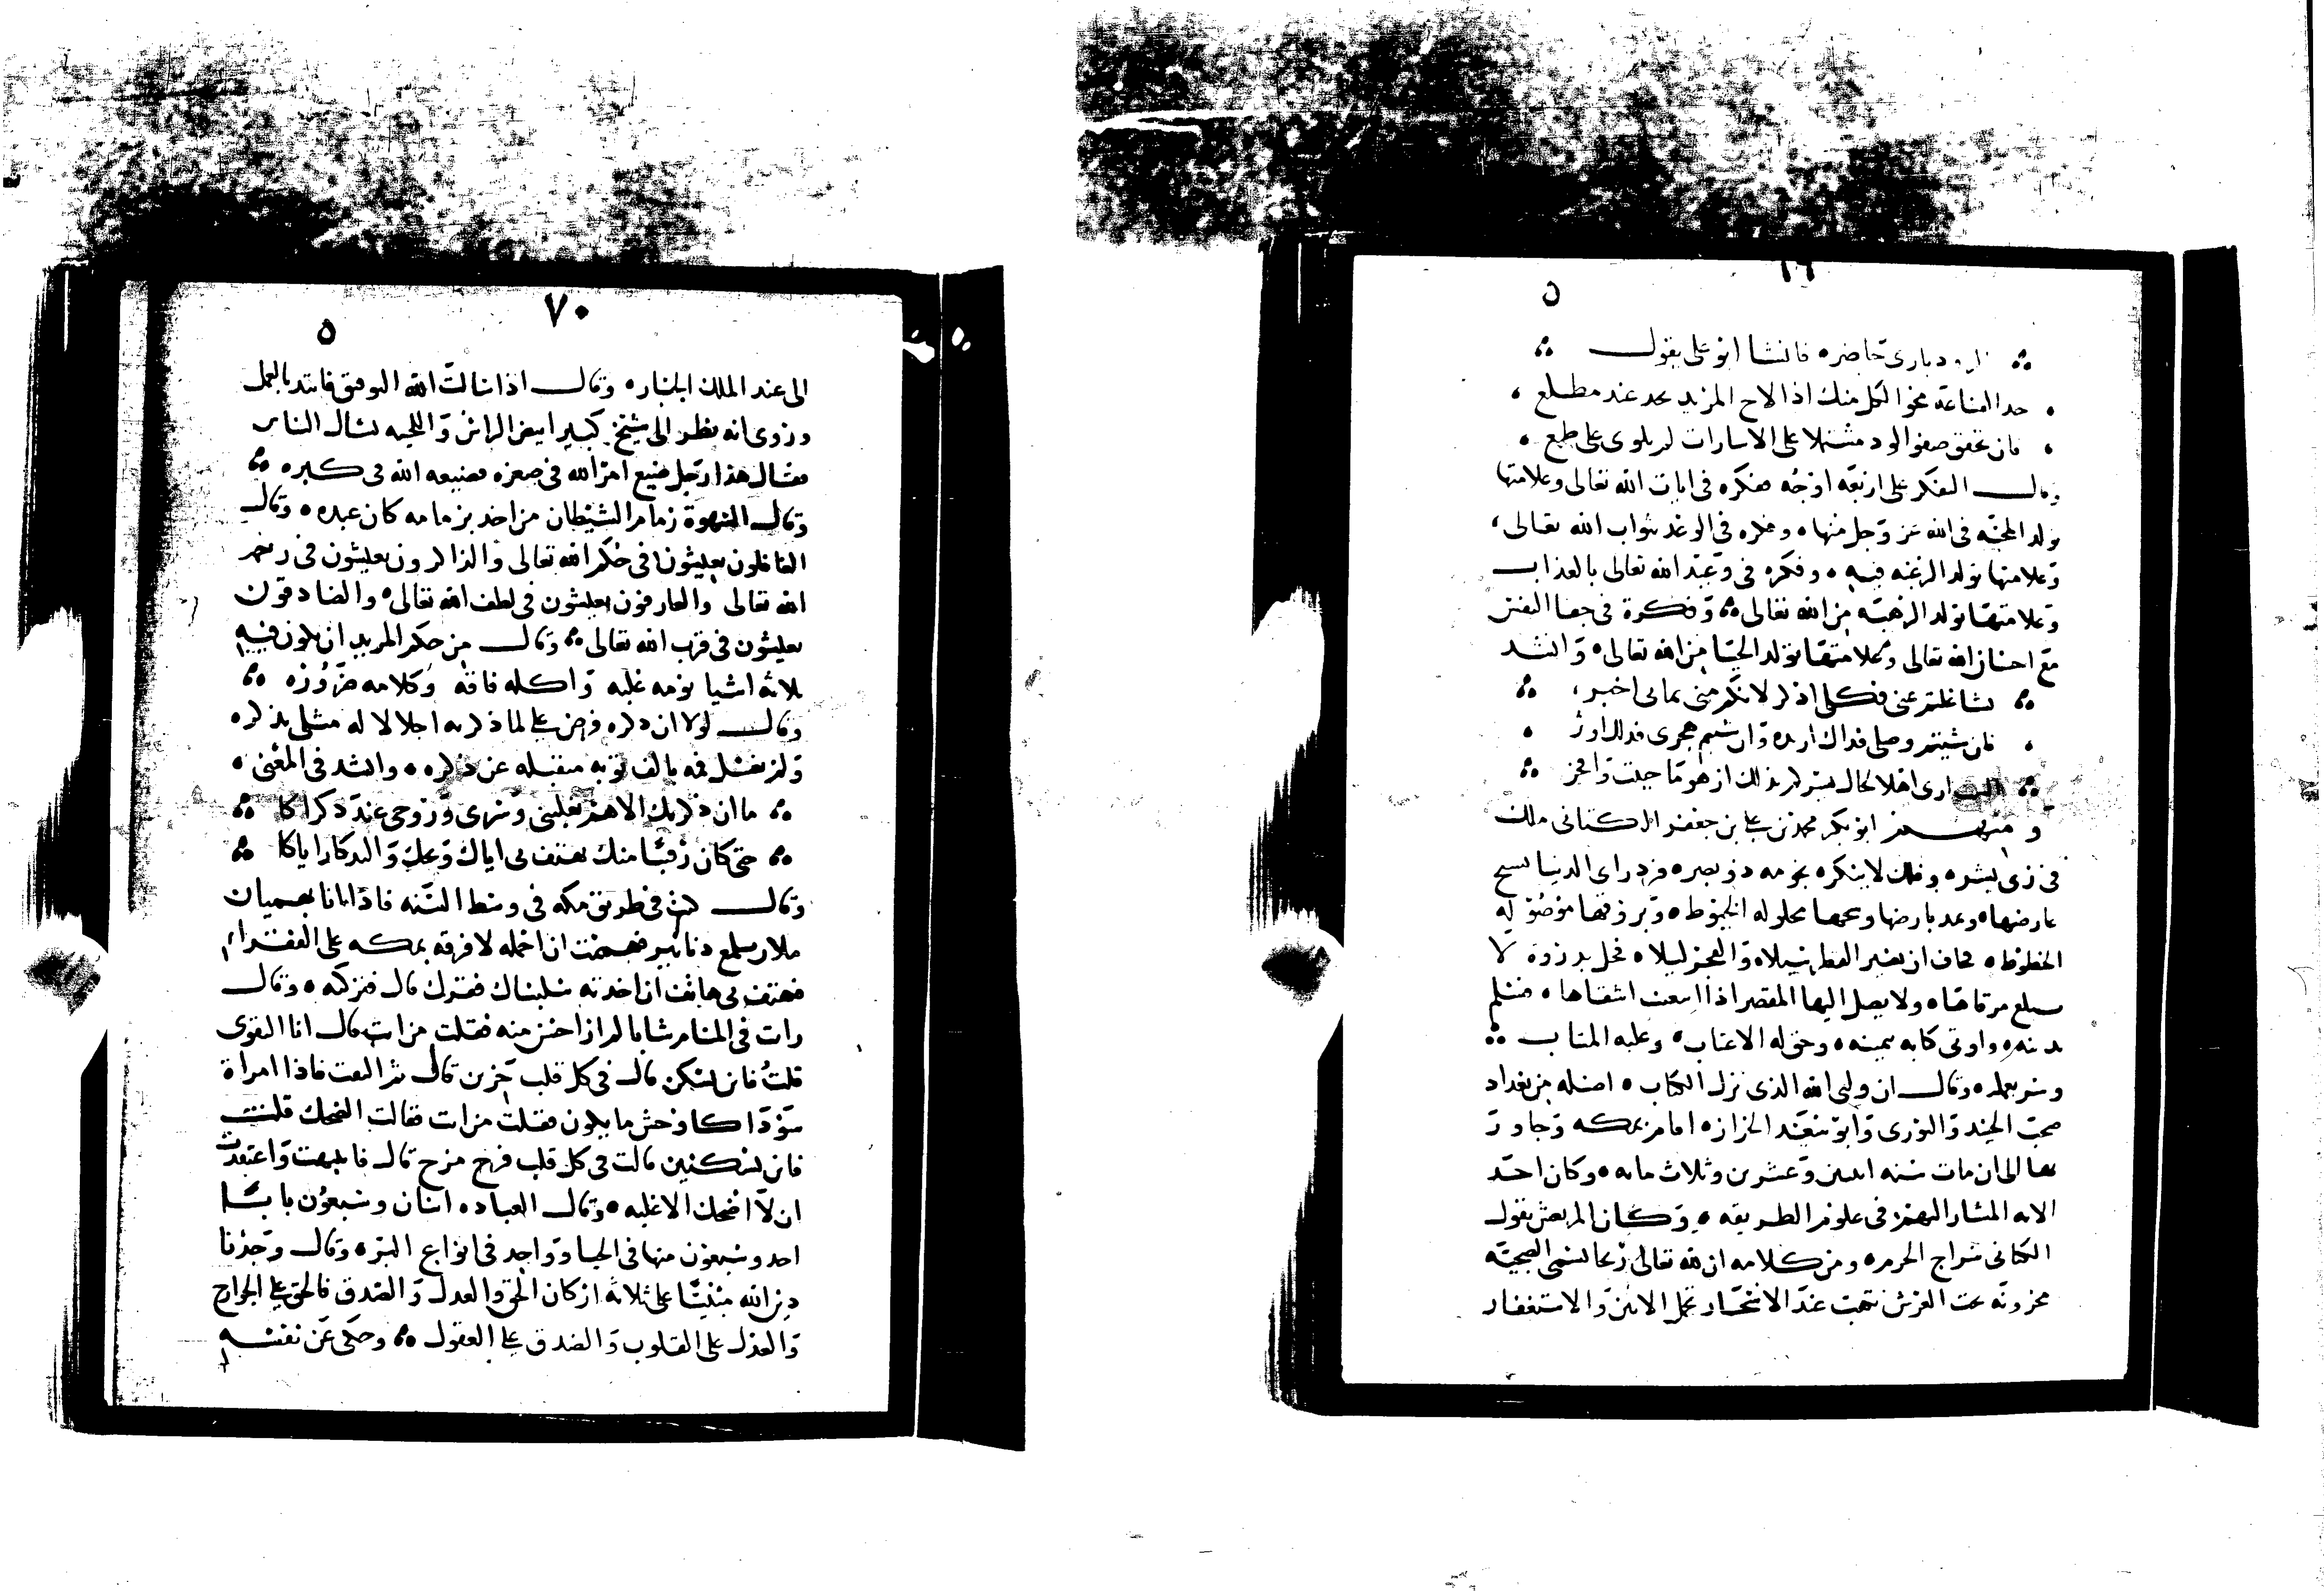 ٦٩
الرودبارى حاضره فانشا ابو على يقول
حد القناعة محو الكل منك اذا لاح المزيد بحد عند مطلع
فان تحقق صفو الود مشتملا على الاشارات لم يلوى على طبع
وقال التفكر على اربعه اوجه ففكره فى ايات الله تعالى وعلامتها
تولد المحبه فى الله عز وجل منها وفكره فى الوعد بثواب الله تعالى
وعلامتها تولد الرغبه فيه وفكره فى وعيد الله تعالى بالعذاب
وعلامتها تولد الرهبه من الله تعالى وفكرة فى جفا النفس
مع احسان الله تعالى وعلامتها تولد الحيا من الله تعالى وانشد
تشاغلتم عنى فكلى اذكر لانكم منى بما بى اخبر
فان شيتم وصلى فذاك اريده وان شيتم هجرى فذلك اوثر
ارى اهلا لحال بذلك ازهو ما حييت وافخر
ومنهم ابو بكر محمد بن على بن جعفر الكتانى ملك
فى زى بشره وفلك لا ينكره نجومه ذو بصره فرد راى الدنيا
عارضها وعمد محلوله الخيوط وبروقها
الخطوط فخاف ان القطر سيلاه والفجر ليلاه فحل بدروة لا
يبلغ مرقاها ولا يصل اليها المقصر اذا انبعث اشقاها فسلم
بدينه واوتى كتابه بيمينه وحق له الاعتاب وعليه المتاب
وسر بعمله وقال ان وليى الله الذى نزل الكتاب اصله من بغداد
صحب الجنيد والنورى وابو سعيد الخراز اقام بمكه وجاور
بها الى ان مات سنه اثنين وعشرين وثلاث مايه وكان احد
الايمه المشار اليهم فى علوم الطريقه وكان المرتعش يقول
الكتانى سراج الحرم ومن كلامه ان لله تعالى ريحا تسمى الصبحيه
مخزونه تحت العرش تهب عند الاسحار تحمل الانين والاستغفار
٧٠
الى عند الملك الجبار وقال اذا سالت الله التوفيق فابتد بالعمل
وروى انه نظر الى شيخ كبير ابيض الراس واللحيه يسال الناس
فقال هذا رجل ضيع امر الله فى صغره فضيعه الله فى كبره
وقال الشهوة زمام الشيطان من اخذ بزمامه كان عبده وقال
الغافلون يعيشون فى حكم الله تعالى والذاكرون يعيشون فى رحمه
الله تعالى والعارفون يعيشون فى لطف الله تعالى والصادقون
يعيشون فى قرب الله تعالى وقال من حكم المريد ان يكون فيه
ثلاثه اشيا نومه غلبه واكله فاقه وكلامه ضروره
وقال لولا ان ذكره فرض على لما ذكرته اجلالا له مثلى يذكره
ولم يغسل فمه بالف توبه متقبله عن ذكره وانشد فى المعنى
ما ان ذكرتك الا هم يغلبنى وسرى وروحى عند ذكراكا
حتى كان رقيبا منك يهتف بى اياك وعك والتدكار اياكا
وقال كنت فى طريق مكه فى وسط السنه فاذا انا بهميان
ملان يلمع دنانير فهممت ان احمله لافرقه بمكه على الفقراء
فهتف بى هاتف ان اخدته سلبناك فقرك قال فتركته وقال
رايت فى المنام شابا لم ار احسن منه فقلت من انت قال انا التقوى
قلت فاين تسكن قال فى كل قلب حزين قال ثم التفت فاذا امراة
سودا كاوحش ما يكون فقلت من انت فقالت الضحك قلت
فاين تسكنين قالت فى كل قلب فرح مرح قال فانتبهت واعتقدت
ان لا اضحك الا غلبه وقال العباده اثنان وسبعون بابا
احد وسبعون منها فى الحيا وواحد فى انواع البر وقال وجدنا
دين الله مبنيا على ثلاثه اركان الحق والعدل والصدق فالحق على الجوارح
والعدل على القلوب والصدق على العقول وحكى عن نفسه